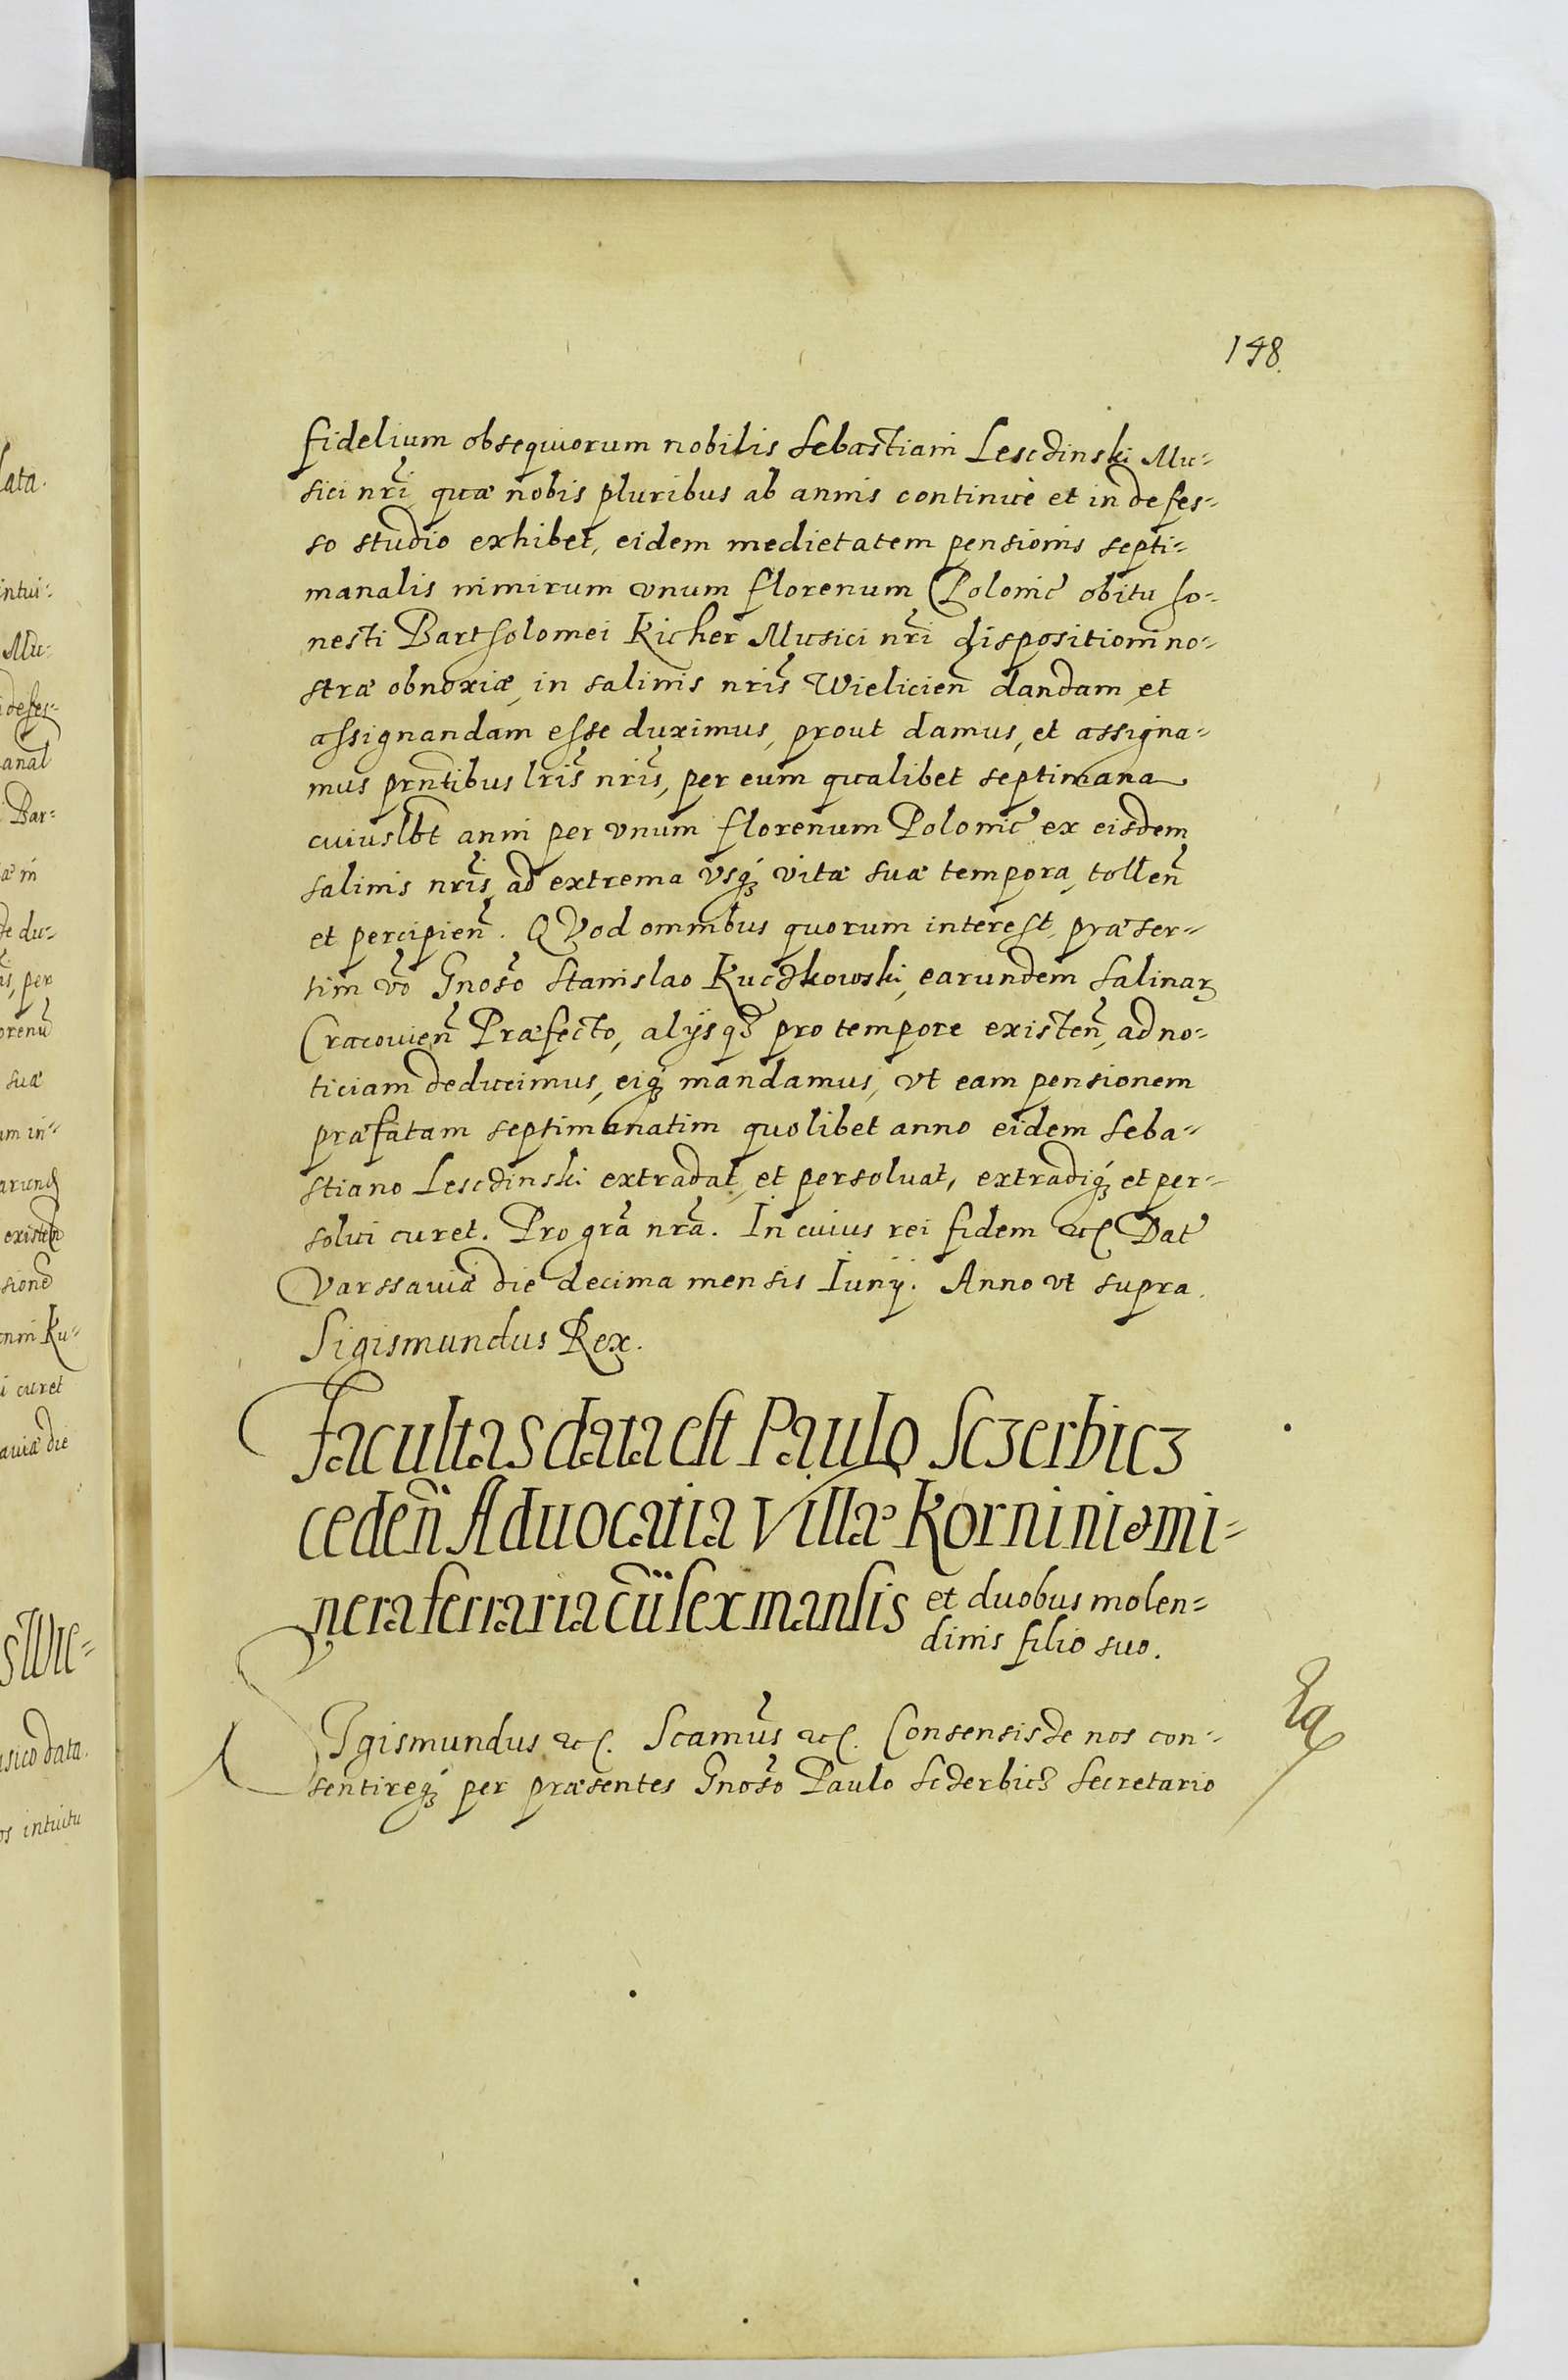 148.
fidelium obsequiorum nobilis Sebastiani Lesczinski Mu-
sici nri, quæ nobis pluribus ab annis continuè et indefes-
so studio exhibet, eidem medietatem pensionis septi-
manalis nimirum vnum florenum Polonic obitu ho-
nesti Bartholomei Kicher Musici nri dispositioni no-
stræ obnoxiæ, in salinis nris Wielicien dandam et
assignandam esse duximus, prout damus, et assigna-
mus prntibus lris nris, per eum qualibet septimana
cuiuslbt anni per vnum florenum Polonic ex eisdem
salinis nris, ad extrema vsq; vitæ suæ tempora, tollen
et percipien. QVod omnibus quorum interest, præser-
tim vo Gnoso Stanislao Kuczkowski, earundem Salinar
Cracouien Præfecto, alijsq; pro tempore existen, ad no-
ticiam deducimus, eiq; mandamus, vt eam pensionem
præfatam septimanatim quolibet anno eidem Seba-
stiano Lesczinski extradat, et persoluat, extradiq; et per-
solui curet. Pro gra nra. In cuius rei fidem etc Dat
Varssauiæ die decima mensis Iunij. Anno vt supra.
Sigismundus Rex.
Facultas data est Paulo Sczerbicz
ceden Aduocatia Villæ Kornini
nera ferraria cu sex mansis et duobus molen-
dinis filio suo.
SIgismundus etc. Scamus etc. Consensisse nos con-
sentireq; per præsentes Gnoso Paulo Sczerbicz Secretario